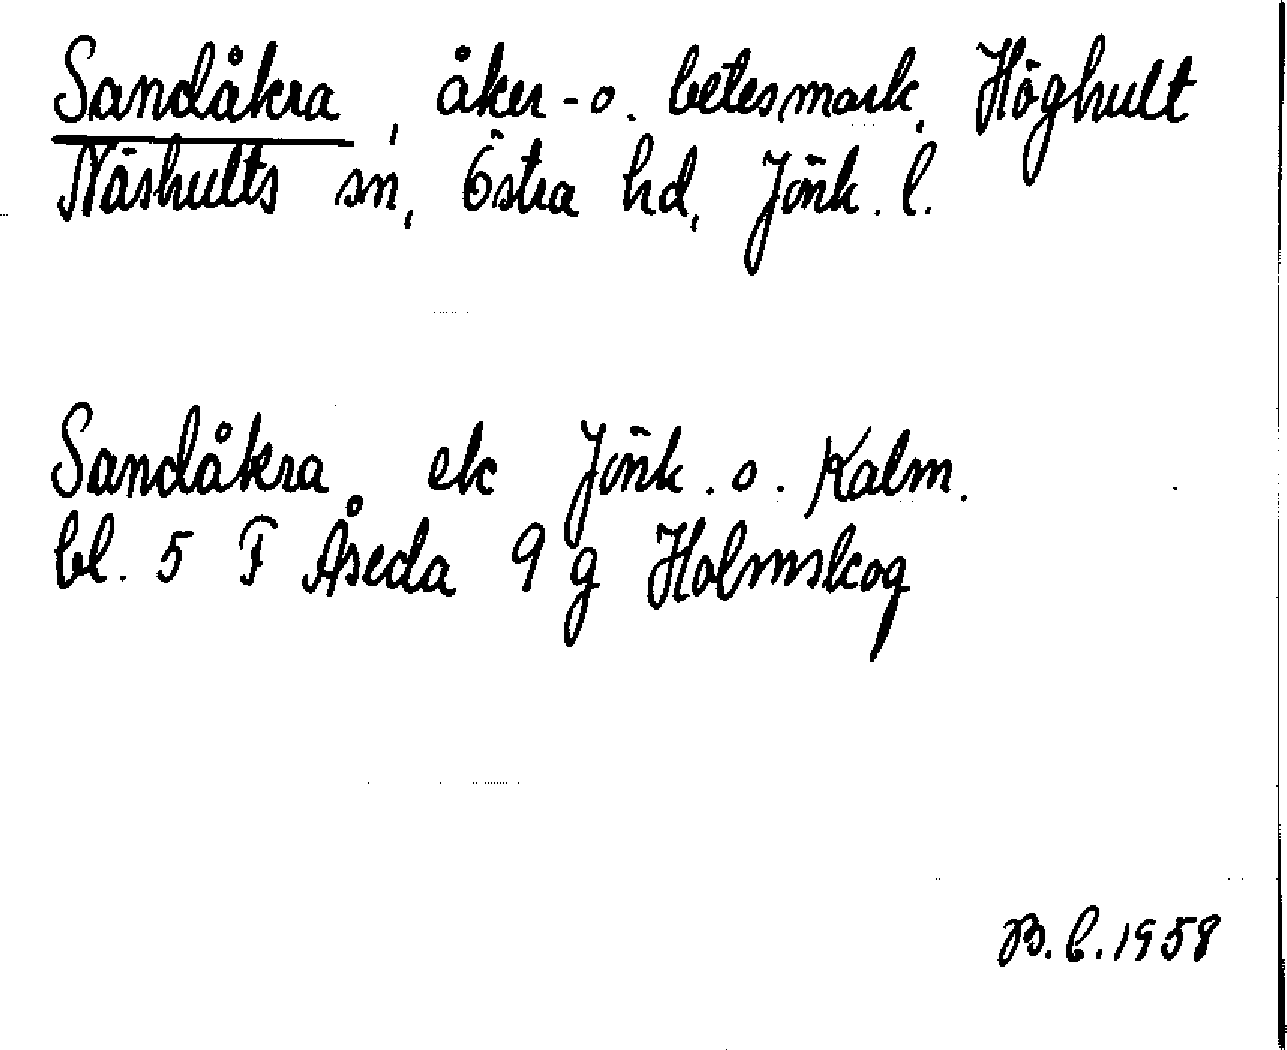 Sandåkra, åker- o. betesmark, Höghult
Näshults sn, Östra hd, Jönk. l.
Sandåkra ek Jönk. o. Kalm.
bl. 5 F Åseda 9 g Holmskog
B.C. 1958